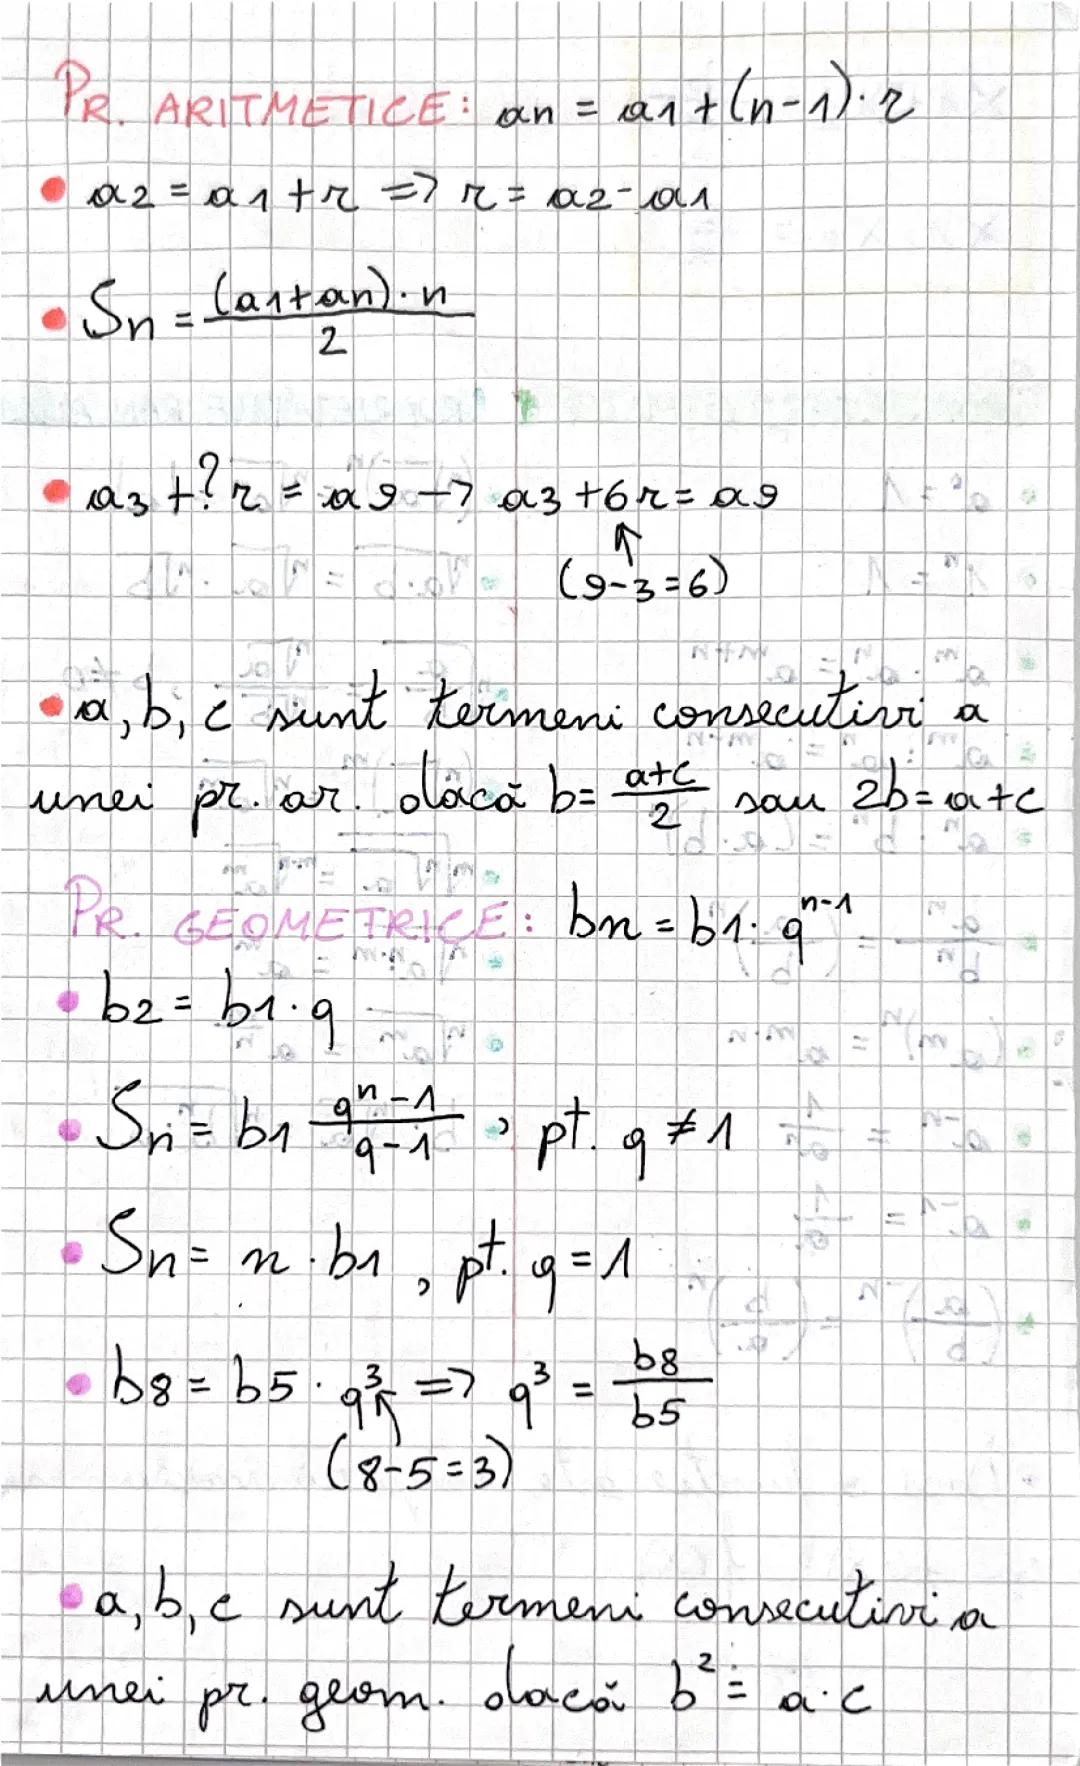 PR. ARITMETICE: an = a1 + (n-1)·r
• a2 = a1 + r => r = a2 - a1
• Sn = (a1+an)·n / 2
• a3 + ? r = a9 → a3 + 6r = a9
↑
(9-3=6)
• a, b, c sunt termeni consecutivi a
unei pr. ar. dacă b = a+c / 2 sau 2b = a+c
PR. GEOMETRICE: bn = b1 · q^(n-1)
• b2 = b1 · q
• Sn = b1 q^n - 1 / q - 1, pt. q ≠ 1
• Sn = n · b1, pt. q = 1
• b8 = b5 · q³ => q³ = b8 / b5
↑
(8-5=3)
• a, b, c sunt termeni consecutivi a
unei pr. geom. dacă b² = a·c